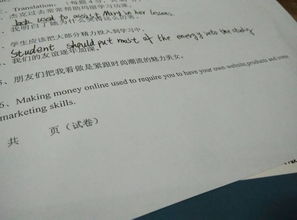 Translation:
杰克过去常常帮玛丽学习功课。
Jack used to assist Mary in her lessons.
学生应该把大部分精力投入到学习中。
Student should put most of the energy into the study
我们的友谊逐年加深。
5、朋友们把我看做是紧跟时尚潮流的魅力美女。
6、Making money online used to require you to have your own website, products and some
marketing skills.
共 页（试卷）